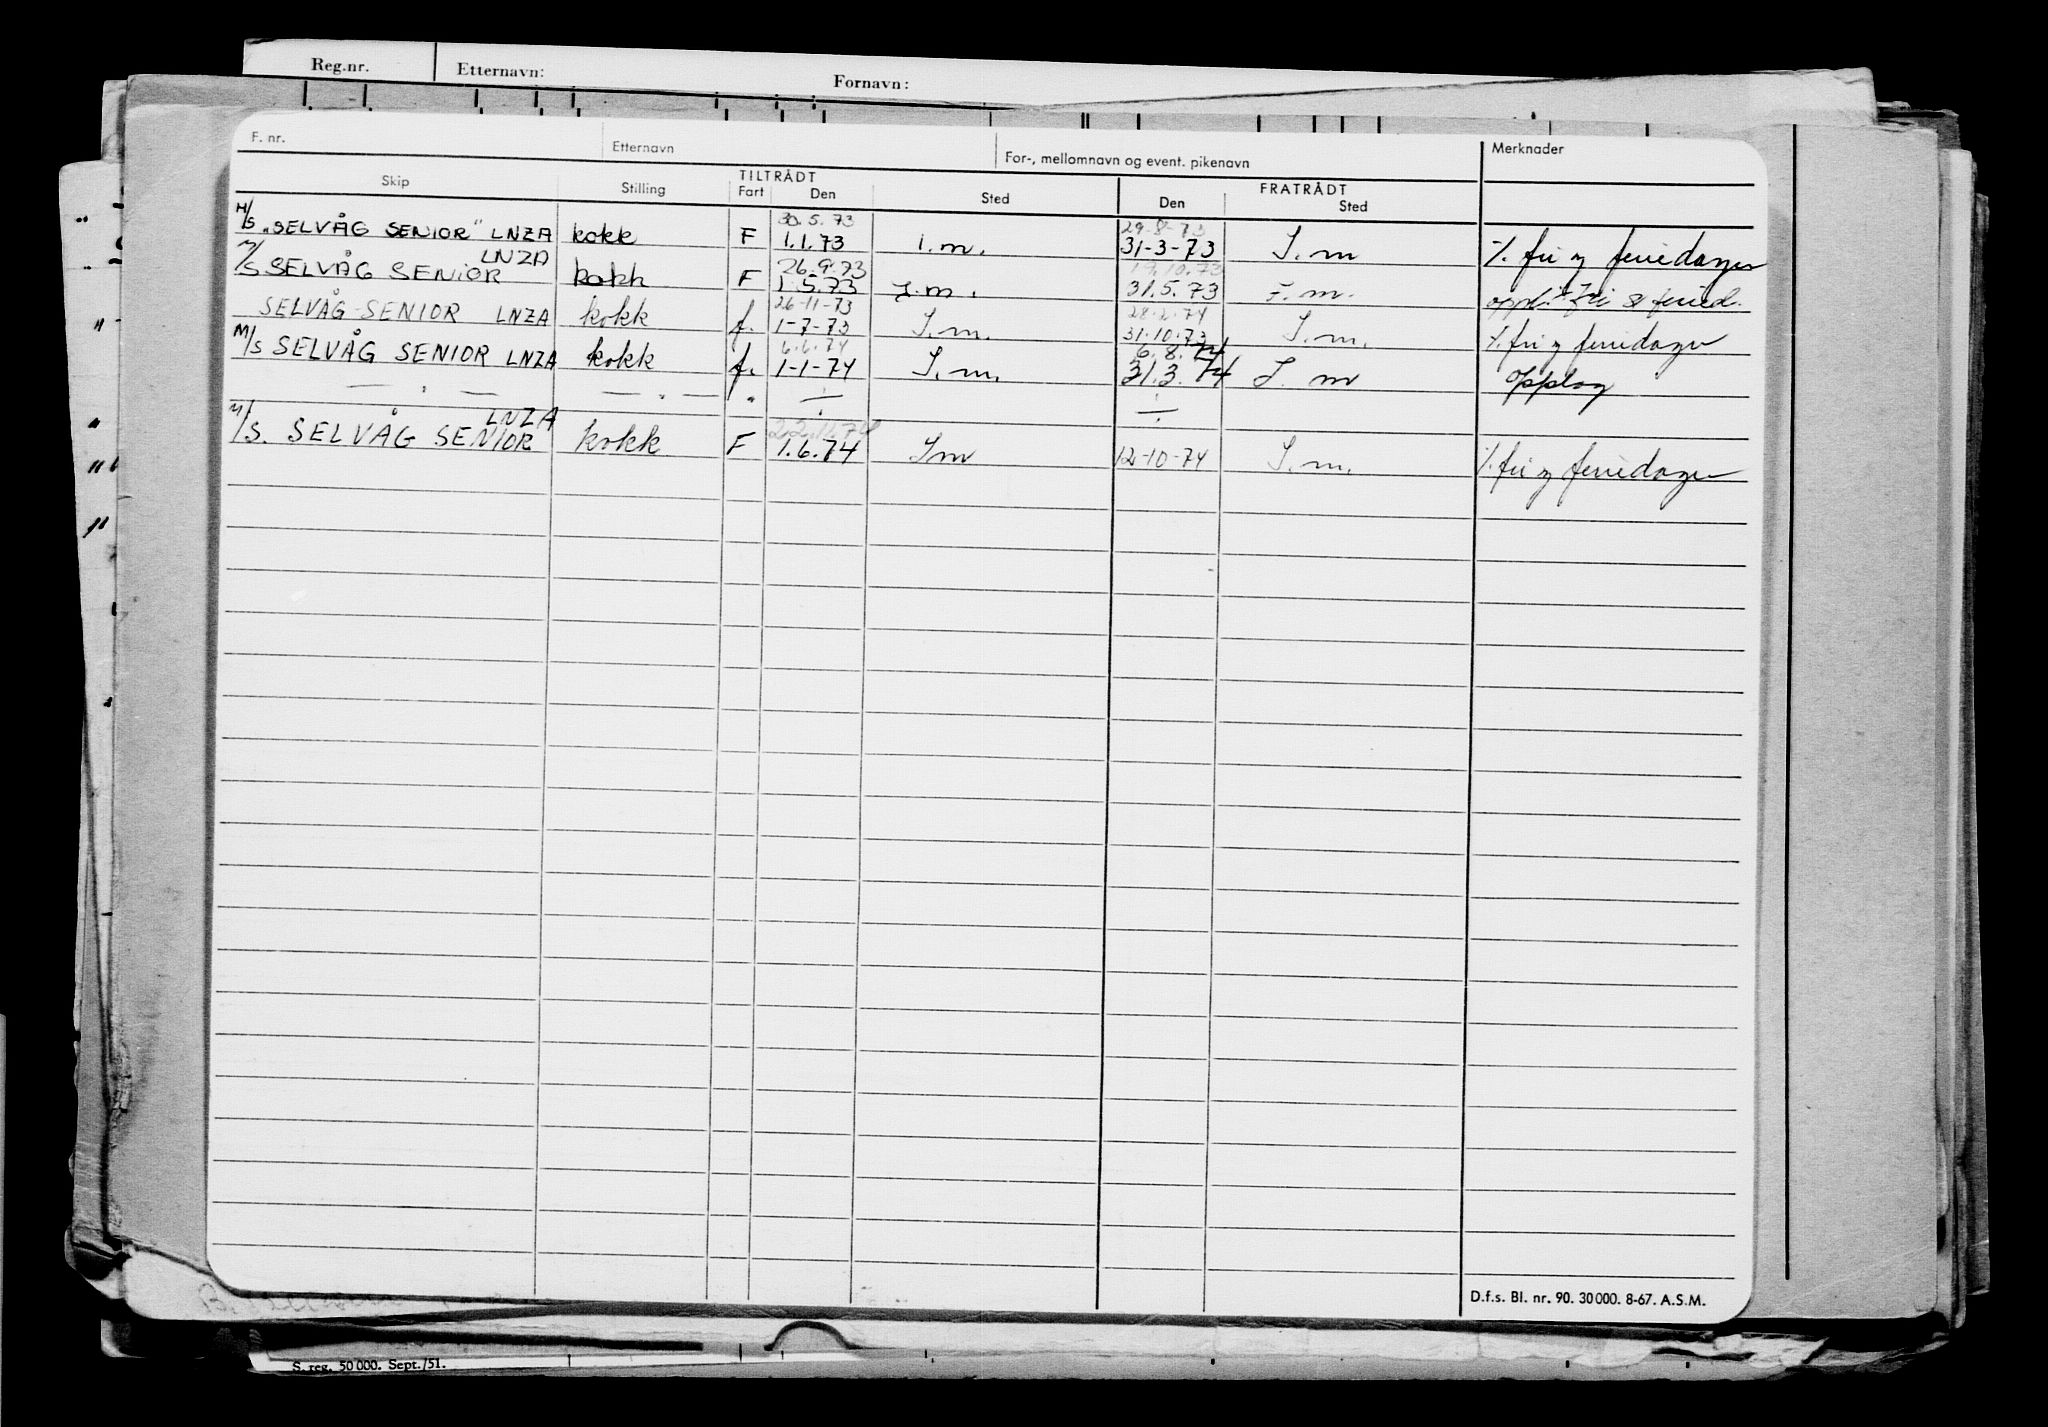 Reg.nr. Etternavn: Fornavn:
F. nr. Etternavn For-, mellomnavn og event. pikenavn Merknader
TILTRÅDT FRATRÅDT
Skip Stilling Fart Den Sted Den Sted
30.5.73 29-8-73
M/S „SELVÅG SENIOR" LNZA kokk F 1.1.73 I.m. 31-3-73 I.m ./. fri og feriedager
LNZA 26.9.73 19.10.73
M/S SELVÅG SENIOR kokk F 1.5.73 I.m. 31.5.73 F.m. oppl. + fri & feried.
26-11-73 28.2.74
SELVÅG-SENIOR LNZA kokk f. 1-7-73 I.m. 31.10.73 I.m. ./. fri og feriedager
6.6.74 6.8.74
M/S SELVÅG SENIOR LNZA kokk f. 1-1-74 I.m. 31.3.74 I.m opplag
— " — — " — " ÷ ÷
LNZA
M/S. SELVÅG SENIOR kokk F 1.6.74 Im 12-10-74 I.m. ./. fri og feriedager
D.f.s. Bl. nr. 90. 30 000. 8-67. A.S.M.
S. reg. 50 000. Sept./51.